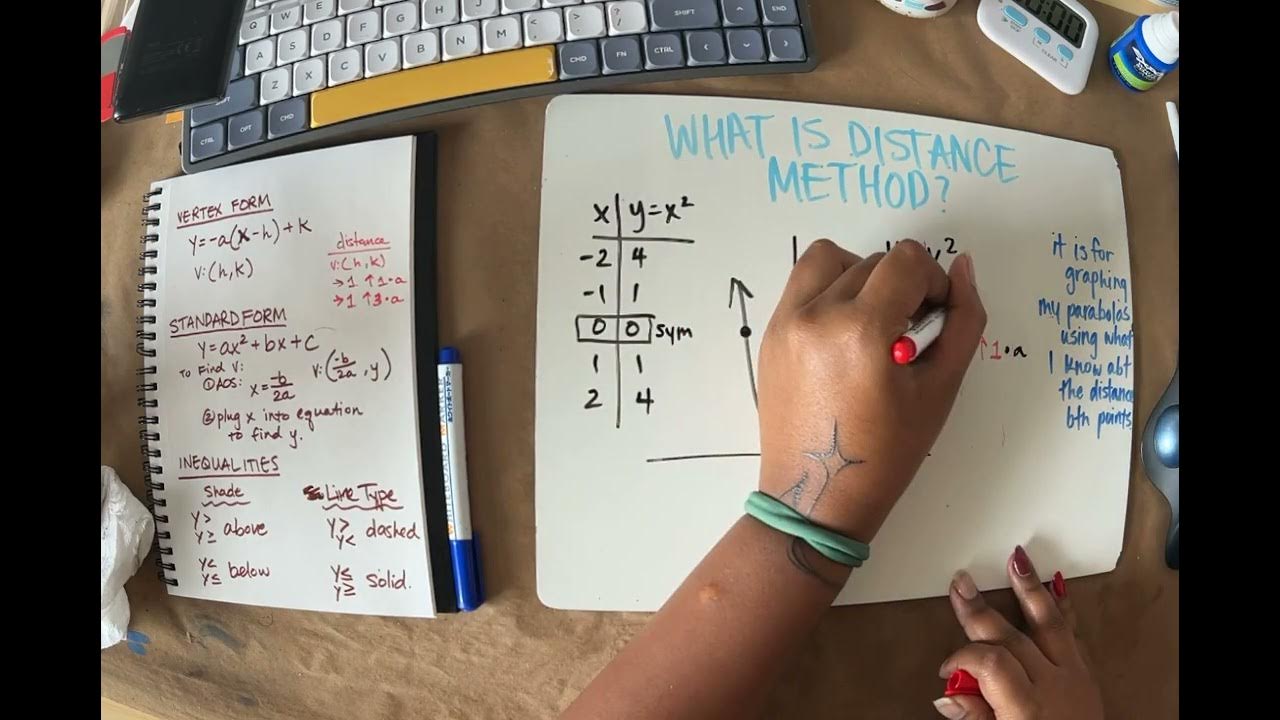 VERTEX FORM
y=-a(x-h)+k
V:(h,k)
distance
V:(h,k)
→1 ↑1·a
→1 ↑3·a
STANDARD FORM
y=ax²+bx+c
To find V:
①AOS: x=-b/2a
V:(-b/2a, y)
②plug x into equation
to find y.
INEQUALITIES
Shade
y>
y≥ above
y<
y≤ below
Line Type
y>
y< dashed
y≤
y≥ solid.
WHAT IS DISTANCE
METHOD?
x y=x²
-2 4
-1 1
0 0 sym
1 1
2 4
↑1·a
it is for
graphing
my parabolas
using what
I know abt
the distance
btn points
A S D F G H J K L
Z X C V B N M
SHIFT
END
CTRL OPT CMD
CMD FN CTRL